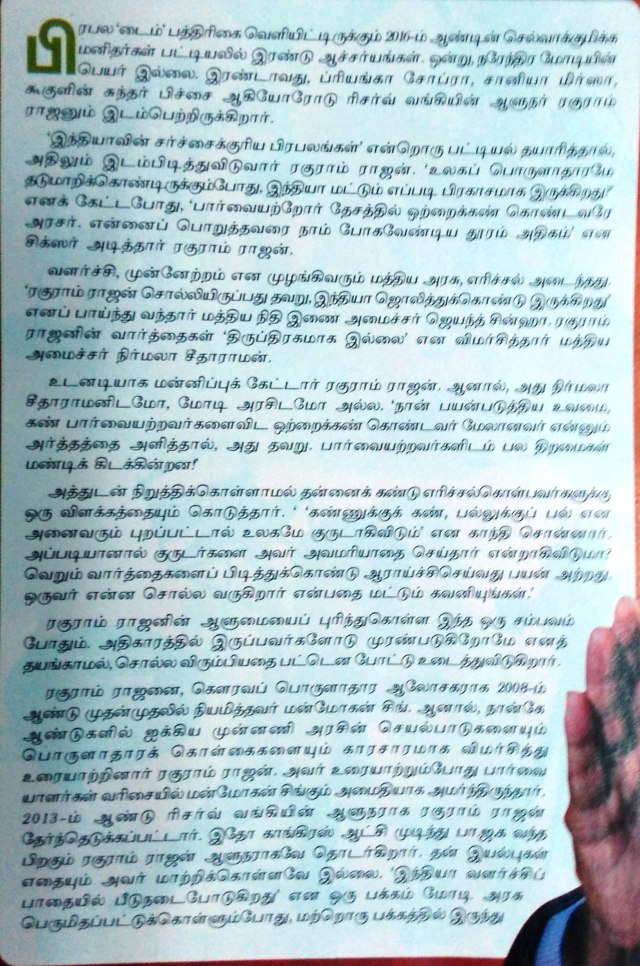 பிரபல 'டைம்' பத்திரிகை வெளியிட்டிருக்கும் 2016-ம் ஆண்டின் செல்வாக்குமிக்க
மனிதர்கள் பட்டியலில் இரண்டு ஆச்சர்யங்கள். ஒன்று, நரேந்திர மோடியின்
பெயர் இல்லை. இரண்டாவது, ப்ரியங்கா சோப்ரா, சானியா மிர்ஸா,
கூகுளின் சுந்தர் பிச்சை ஆகியோரோடு ரிசர்வ் வங்கியின் ஆளுநர் ரகுராம்
ராஜனும் இடம்பெற்றிருக்கிறார்.
'இந்தியாவின் சர்ச்சைக்குரிய பிரபலங்கள்' என்றொரு பட்டியல் தயாரித்தால்,
அதிலும் இடம்பிடித்துவிடுவார் ரகுராம் ராஜன். 'உலகப் பொருளாதாரமே
தடுமாறிக்கொண்டிருக்கும்போது, இந்தியா மட்டும் எப்படி பிரகாசமாக இருக்கிறது?'
எனக் கேட்டபோது, 'பார்வையற்றோர் தேசத்தில் ஒற்றைக்கண் கொண்டவரே
அரசர். என்னைப் பொறுத்தவரை நாம் போகவேண்டிய தூரம் அதிகம்' என
சிக்ஸர் அடித்தார் ரகுராம் ராஜன்.
வளர்ச்சி, முன்னேற்றம் என முழங்கிவரும் மத்திய அரசு, எரிச்சல் அடைந்தது.
'ரகுராம் ராஜன் சொல்லியிருப்பது தவறு, இந்தியா ஜொலித்துக்கொண்டு இருக்கிறது'
எனப் பாய்ந்து வந்தார் மத்திய நிதி இணை அமைச்சர் ஜெயந்த் சின்ஹா. ரகுராம்
ராஜனின் வார்த்தைகள் 'திருப்திரகமாக இல்லை' என விமர்சித்தார் மத்திய
அமைச்சர் நிர்மலா சீதாராமன்.
உடனடியாக மன்னிப்புக் கேட்டார் ரகுராம் ராஜன். ஆனால், அது நிர்மலா
சீதாராமனிடமோ, மோடி அரசிடமோ அல்ல. 'நான் பயன்படுத்திய உவமை,
கண் பார்வையற்றவர்களைவிட ஒற்றைக்கண் கொண்டவர் மேலானவர் என்னும்
அர்த்தத்தை அளித்தால், அது தவறு. பார்வையற்றவர்களிடம் பல திறமைகள்
மண்டிக் கிடக்கின்றன!'
அத்துடன் நிறுத்திக்கொள்ளாமல் தன்னைக் கண்டு எரிச்சல்கொள்பவர்களுக்கு
ஒரு விளக்கத்தையும் கொடுத்தார். ' 'கண்ணுக்குக் கண், பல்லுக்குப் பல் என
அனைவரும் புறப்பட்டால் உலகமே குருடாகிவிடும்' என காந்தி சொன்னார்.
அப்படியானால் குருடர்களை அவர் அவமரியாதை செய்தார் என்றாகிவிடுமா?
வெறும் வார்த்தைகளைப் பிடித்துக்கொண்டு ஆராய்ச்சிசெய்வது பயன் அற்றது.
ஒருவர் என்ன சொல்ல வருகிறார் என்பதை மட்டும் கவனியுங்கள்.'
ரகுராம் ராஜனின் ஆளுமையைப் புரிந்துகொள்ள இந்த ஒரு சம்பவம்
போதும். அதிகாரத்தில் இருப்பவர்களோடு முரண்படுகிறோமே எனத்
தயங்காமல், சொல்ல விரும்பியதை பட்டென போட்டு உடைத்துவிடுகிறார்.
ரகுராம் ராஜனை, கௌரவப் பொருளாதார ஆலோசகராக 2008-ம்
ஆண்டு முதன்முதலில் நியமித்தவர் மன்மோகன் சிங். ஆனால், நான்கே
ஆண்டுகளில் ஐக்கிய முன்னணி அரசின் செயல்பாடுகளையும்
பொருளாதாரக் கொள்கைகளையும் காரசாரமாக விமர்சித்து
உரையாற்றினார் ரகுராம் ராஜன். அவர் உரையாற்றும்போது பார்வை
யாளர்கள் வரிசையில் மன்மோகன் சிங்கும் அமைதியாக அமர்ந்திருந்தார்.
2013-ம் ஆண்டு ரிசர்வ் வங்கியின் ஆளுநராக ரகுராம் ராஜன்
தேர்ந்தெடுக்கப்பட்டார். இதோ காங்கிரஸ் ஆட்சி முடிந்து பாஜக வந்த
பிறகும் ரகுராம் ராஜன் ஆளுநராகவே தொடர்கிறார். தன் இயல்புகள்
எதையும் அவர் மாற்றிக்கொள்ளவே இல்லை. 'இந்தியா வளர்ச்சிப்
பாதையில் பீடுநடைபோடுகிறது' என ஒரு பக்கம் மோடி அரசு
பெருமிதப்பட்டுக்கொள்ளும்போது, மற்றொரு பக்கத்தில் இருந்து